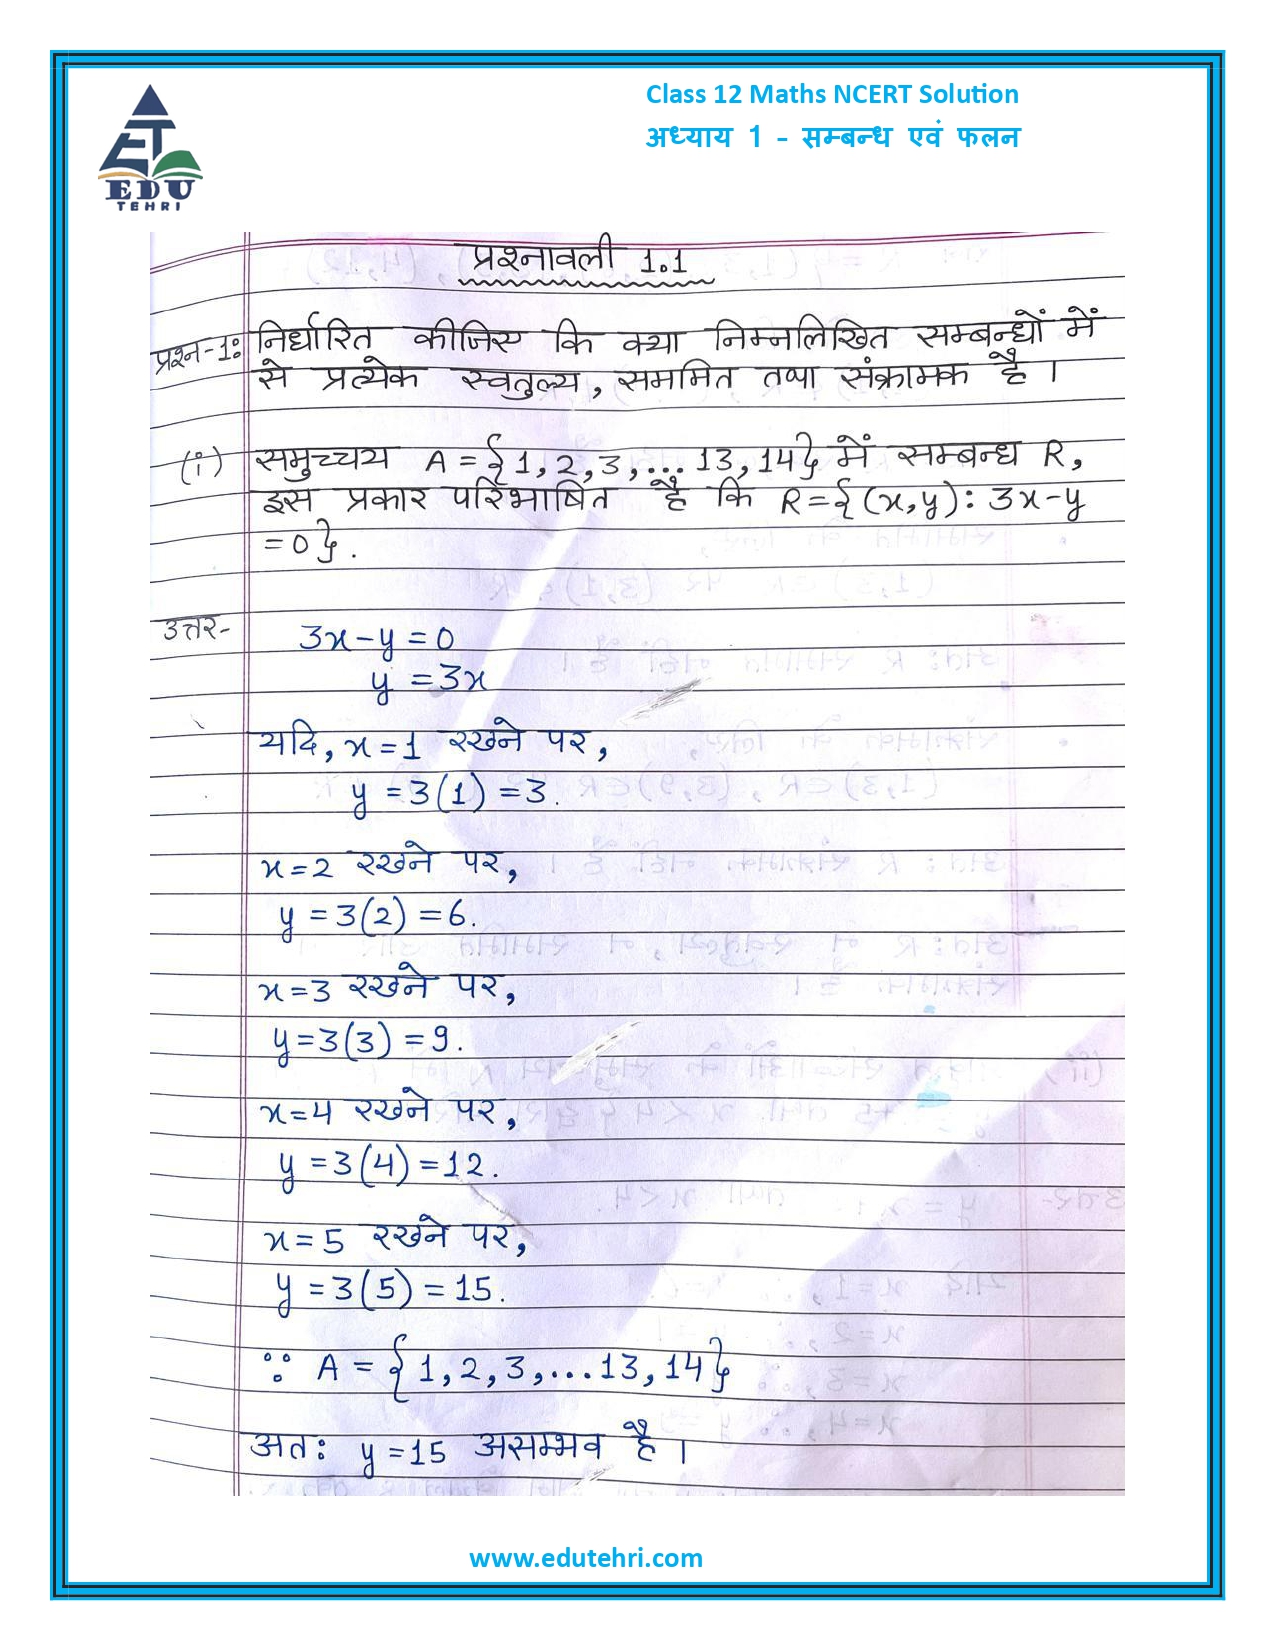 Class 12 Maths NCERT Solution
अध्याय 1 - सम्बन्ध एवं फलन
ET
EDU
TEHRI
प्रश्नावली 1.1
प्रश्न-1: निर्धारित कीजिए कि क्या निम्नलिखित सम्बन्धों में
से प्रत्येक स्वतुल्य, सममित तथा संक्रामक है।
(i) समुच्चय A = {1, 2, 3, ... 13, 14} में सम्बन्ध R,
इस प्रकार परिभाषित है कि R = {(x, y) : 3x - y
= 0}.
उत्तर- 3x - y = 0
y = 3x
यदि, x = 1 रखने पर,
y = 3(1) = 3.
x = 2 रखने पर,
y = 3(2) = 6.
x = 3 रखने पर,
y = 3(3) = 9.
x = 4 रखने पर,
y = 3(4) = 12.
x = 5 रखने पर,
y = 3(5) = 15.
∵ A = {1, 2, 3, ... 13, 14}
अतः y = 15 असम्भव है।
www.edutehri.com